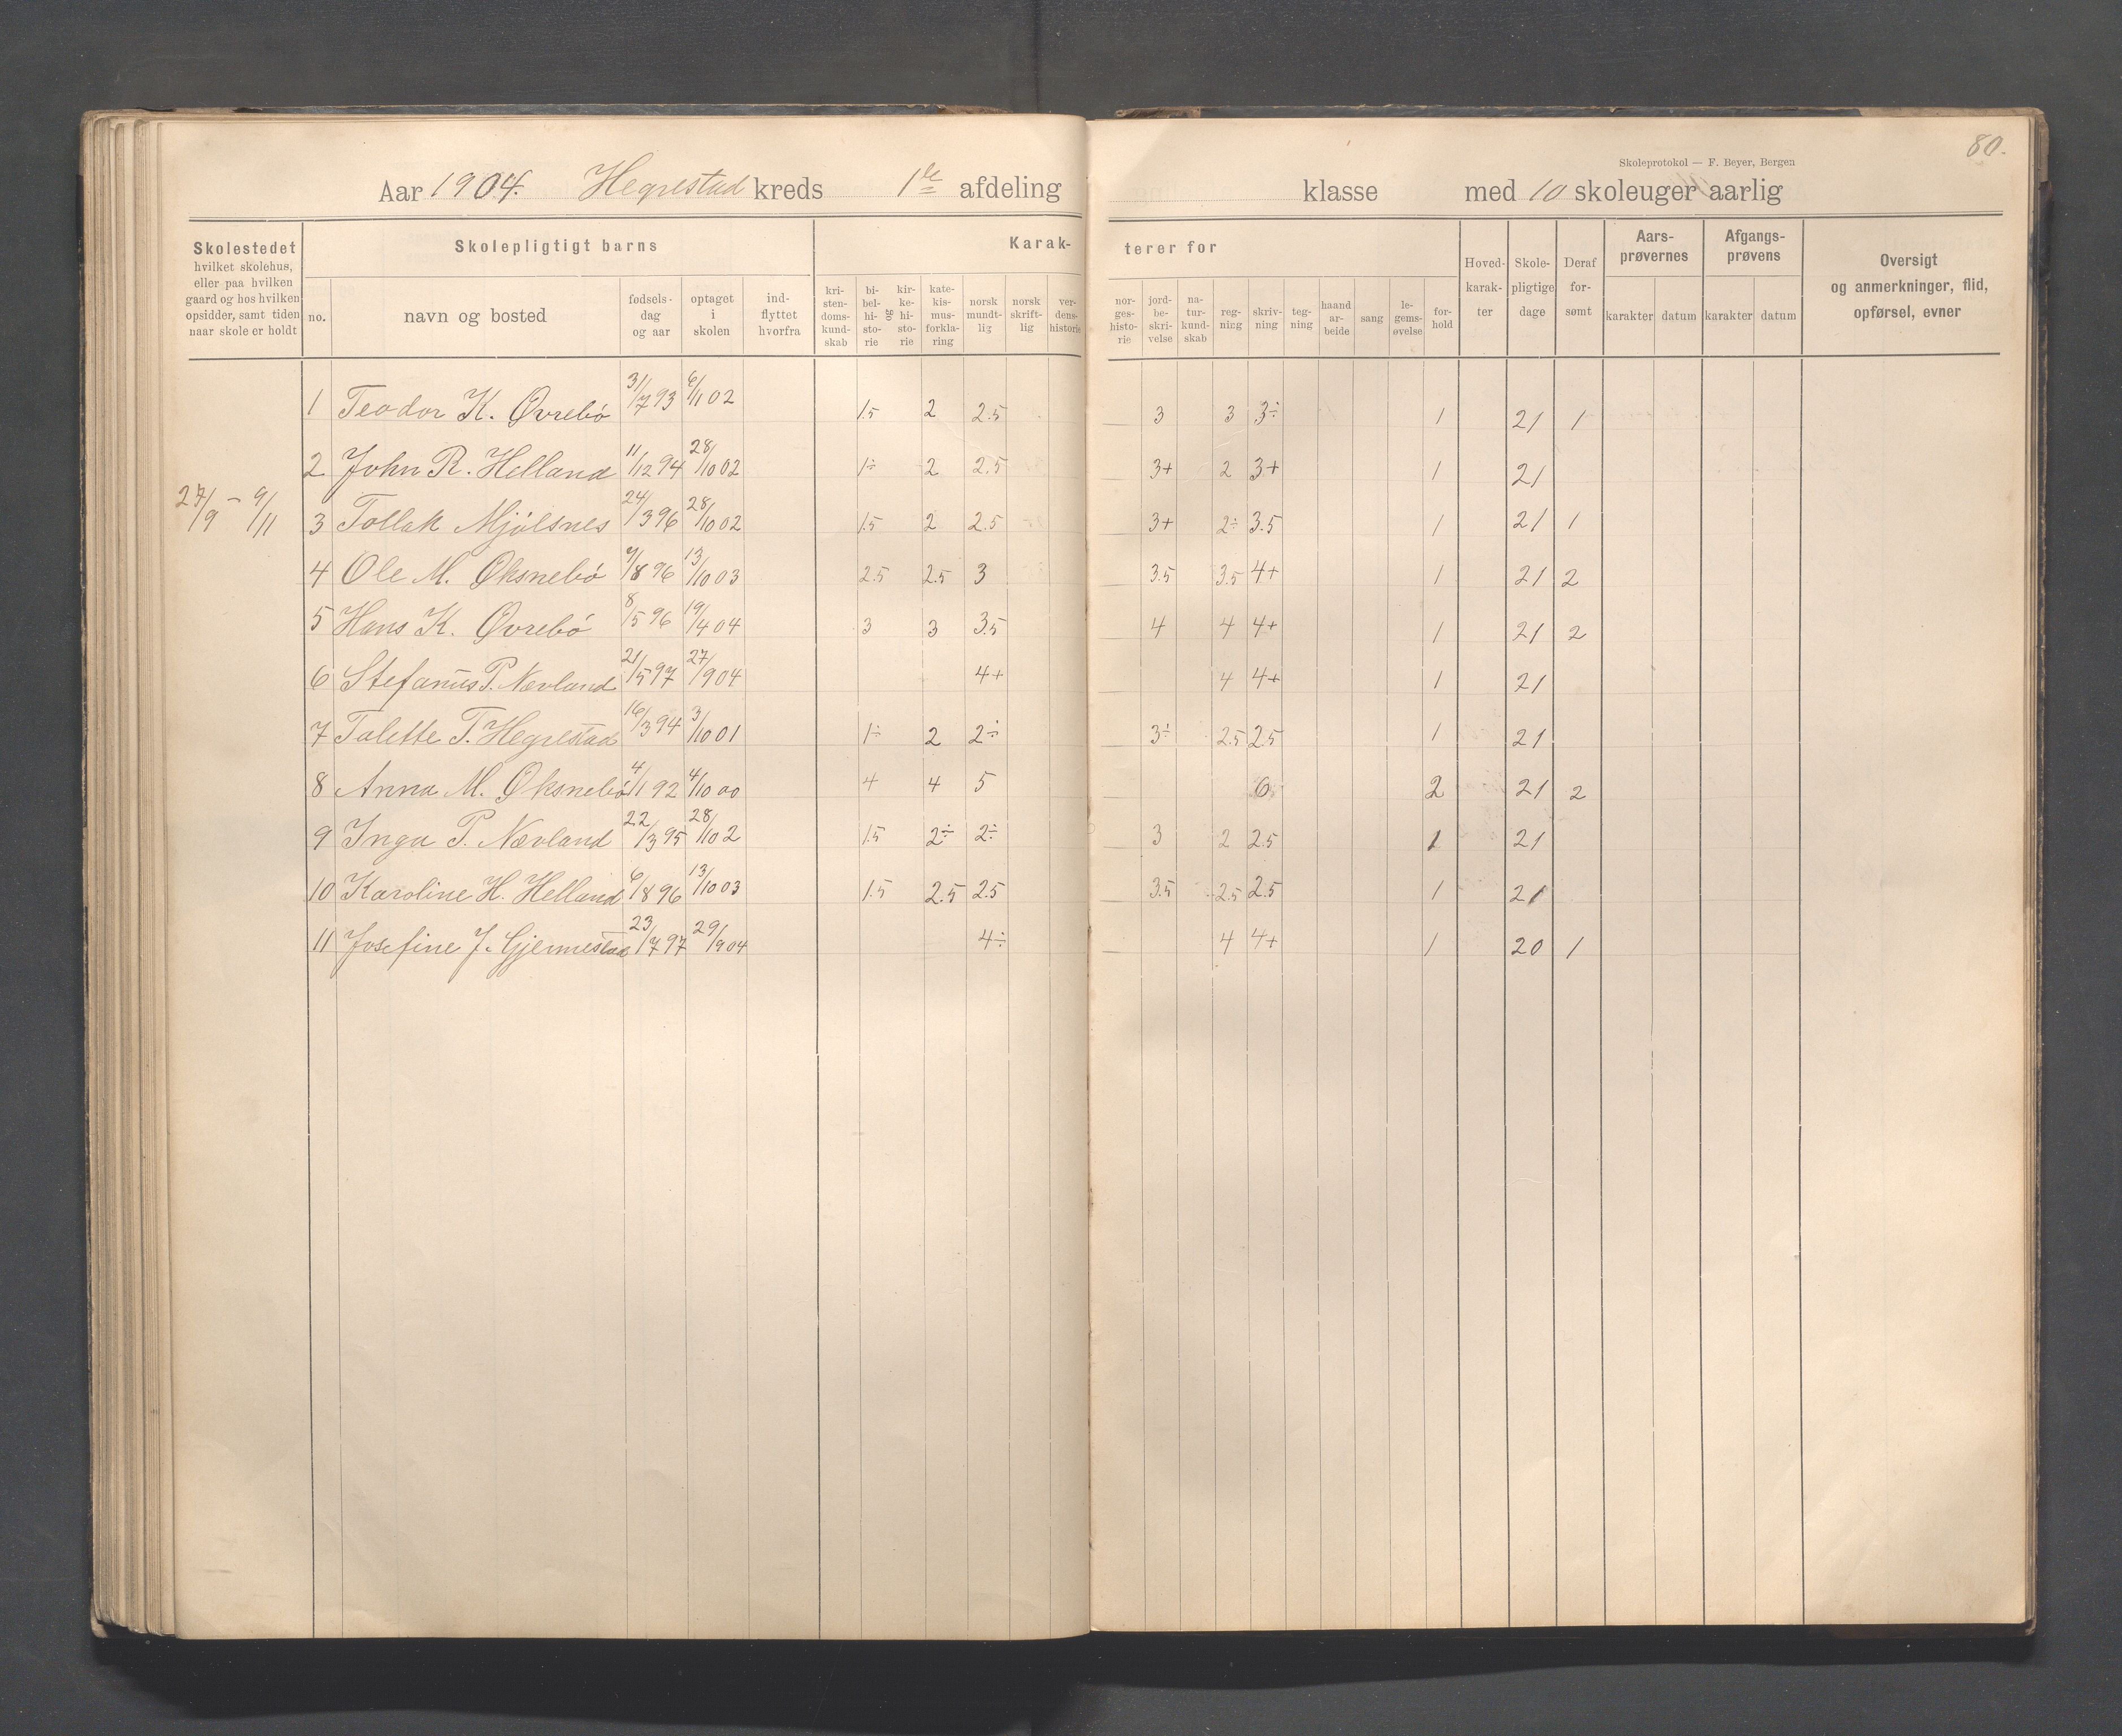 80.
Skoleprotokol — F. Beyer, Bergen
Aar 1904. Hegrestad kreds 1ste afdeling klasse med 10 skoleuger aarlig
Skolestedet hvilket skolehus, eller paa hvilken gaard og hos hvilken opsidder, samt tiden naar skole er holdt
Skolepligtigt barns
no. navn og bosted fødsels-dag og aar optaget i skolen ind-flyttet hvorfra
Karak-terer for
kri-sten-doms-kund-skab bi-bel-hi-sto-rie og kir-ke-hi-sto-rie kate-kis-mus-forkla-ring norsk mundt-lig norsk skrift-lig ver-dens-historie nor-ges-histo-rie jord-be-skri-velse na-tur-kund-skab reg-ning skriv-ning teg-ning haand ar-beide sang le-gems-øvelse for-hold
Hoved-karak-ter Skole-pligtige dage Deraf for-sømt
Aars-prøvernes karakter datum
Afgangs-prøvens karakter datum
Oversigt og anmerkninger, flid, opførsel, evner
27/9 – 9/11
1 Teodor K. Øvrebö 31/7 93 6/11 02 1.5 2 2.5 3 3 3÷ 1 21 1
2 John R. Helland 11/12 94 28/10 02 1÷ 2 2.5 3+ 2 3+ 1 21
3 Tollak Mjölsnes 24/3 96 28/10 02 1.5 2 2.5 3+ 2÷ 3.5 1 21 1
4 Ole M. Øksnebö 7/8 96 13/10 03 2.5 2.5 3 3.5 3.5 4+ 1 21 2
5 Hans K. Øvrebö 8/5 96 19/4 04 3 3 3.5 4 4 4+ 1 21 2
6 Stefanus P. Nævland 21/5 97 27/9 04 4+ 4 4+ 1 21
7 Talette T. Hegrestad 16/3 94 3/10 01 1÷ 2 2÷ 3÷ 2.5 2.5 1 21
8 Anna M. Øksnebö 4/1 92 4/10 00 4 4 5 6 2 21 2
9 Inga P. Nævland 22/3 95 28/10 2 1.5 2÷ 2÷ 3 2 2.5 1 21
10 Karoline H. Helland 6/8 96 13/10 03 1.5 2.5 2.5 3.5 2.5 2.5 1 21
11 Josefine J. Gjermestad 23/7 97 29/9 04 4÷ 4 4+ 1 20 1